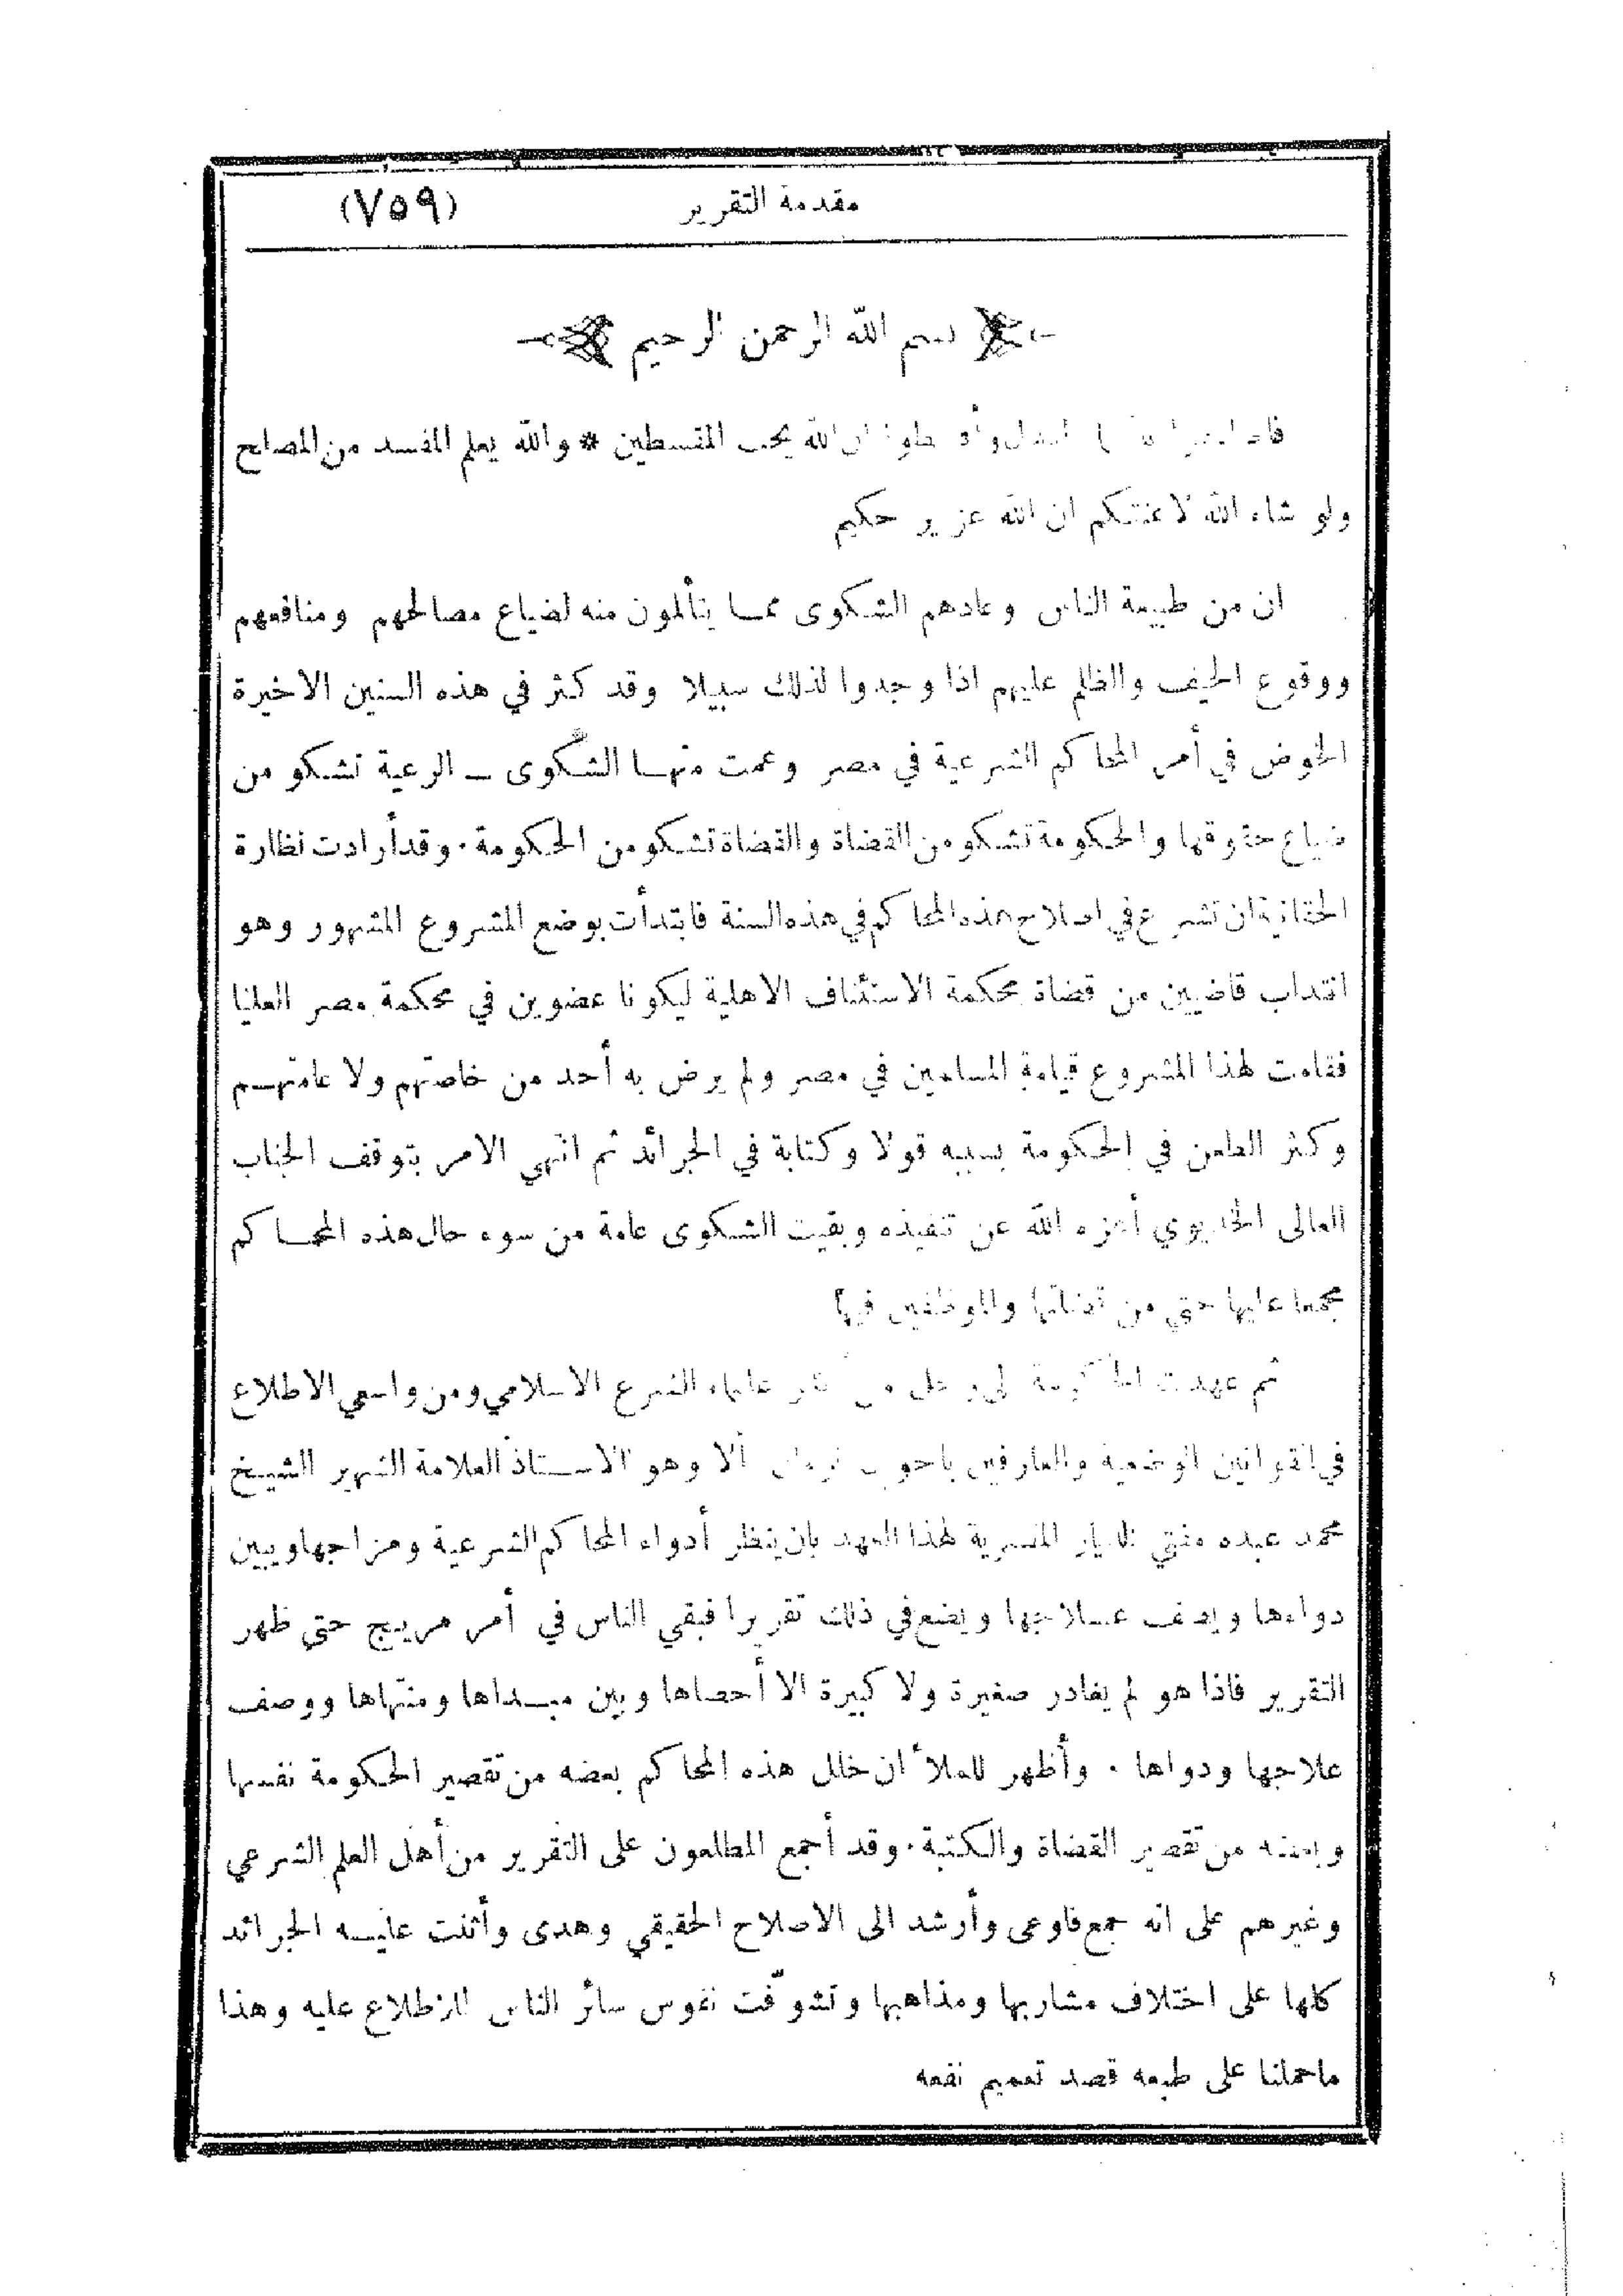 مقدمة التقرير (٧٥٩)
بسم الله الرحمن الرحيم
وأقسطوا ان الله يحب المقسطين * والله يعلم المفسد من المصلح
ولو شاء الله لاعنتكم ان الله عزيز حكيم
ان من طبيعة الناس وعادهم الشكوى ممــا يتألمون منه لضياع مصالحهم ومنافعهم
ووقوع الحيف والظلم عليهم اذا وجدوا لذلك سبيلا وقد كثر في هذه السنين الاخيرة
الخوض في أمر المحاكم الشرعية في مصر وعمت منهــا الشكوى ــ الرعية تشكو من
ضياع حقوقها والحكومة تشكو من القضاة والقضاة تشكو من الحكومة. وقد أرادت نظارة
الحقانية ان تشرع في اصلاح هذه المحاكم في هذه السنة فابتدأت بوضع المشروع المشهور وهو
انتداب قاضيين من قضاة محكمة الاستئناف الاهلية ليكونا عضوين في محكمة مصر العليا
فقامت لهذا المشروع قيامة المسلمين في مصر ولم يرض به أحد من خاصتهم ولا عامتهــم
وكثر الطعن في الحكومة بسببه قولا وكتابة في الجرائد ثم انتهى الامر بتوقف الجناب
العالى الخديوي أعزه الله عن تنفيذه وبقيت الشكوى عامة من سوء حال هذه المحــاكم
مجمعا عليها حتي من قضاتها والموظفين فيها
ثم عهدت الحكومة الى رجل من علماء الشرع الاسلامي ومن واسعي الاطلاع
في القوانين الوضعية والعارفين ألا وهو الاســتاذ العلامة الشهير الشيــخ
محمد عبده مفتي الديار المصرية لهذا العهد بان ينظر أدواء المحاكم الشرعية ومزاجها ويبين
دواءها ويصف عــلاجها ويضع في ذلك تقريرا فبقي الناس في أمر مريــج حتي ظهر
التقرير فاذا هو لم يغادر صغيرة ولا كبيرة الا أحصاها وبين مبــداها ومنتهاها ووصف
علاجها ودواها . وأظهر للملأ ان خلل هذه المحاكم بعضه من تقصير الحكومة نفسها
وبعضه من تقصير القضاة والكتبة. وقد أجمع المطلعون على التقرير من أهل العلم الشرعي
وغيرهم على انه جمع فاوعى وأرشد الى الاصلاح الحقيقي وهدى وأثنت عليــه الجرائد
كلها على اختلاف مشاربها ومذاهبها وتشوّقت نفوس سائر الناس للاطلاع عليه وهذا
ماحملنا على طبعه قصد تعميم نفعه